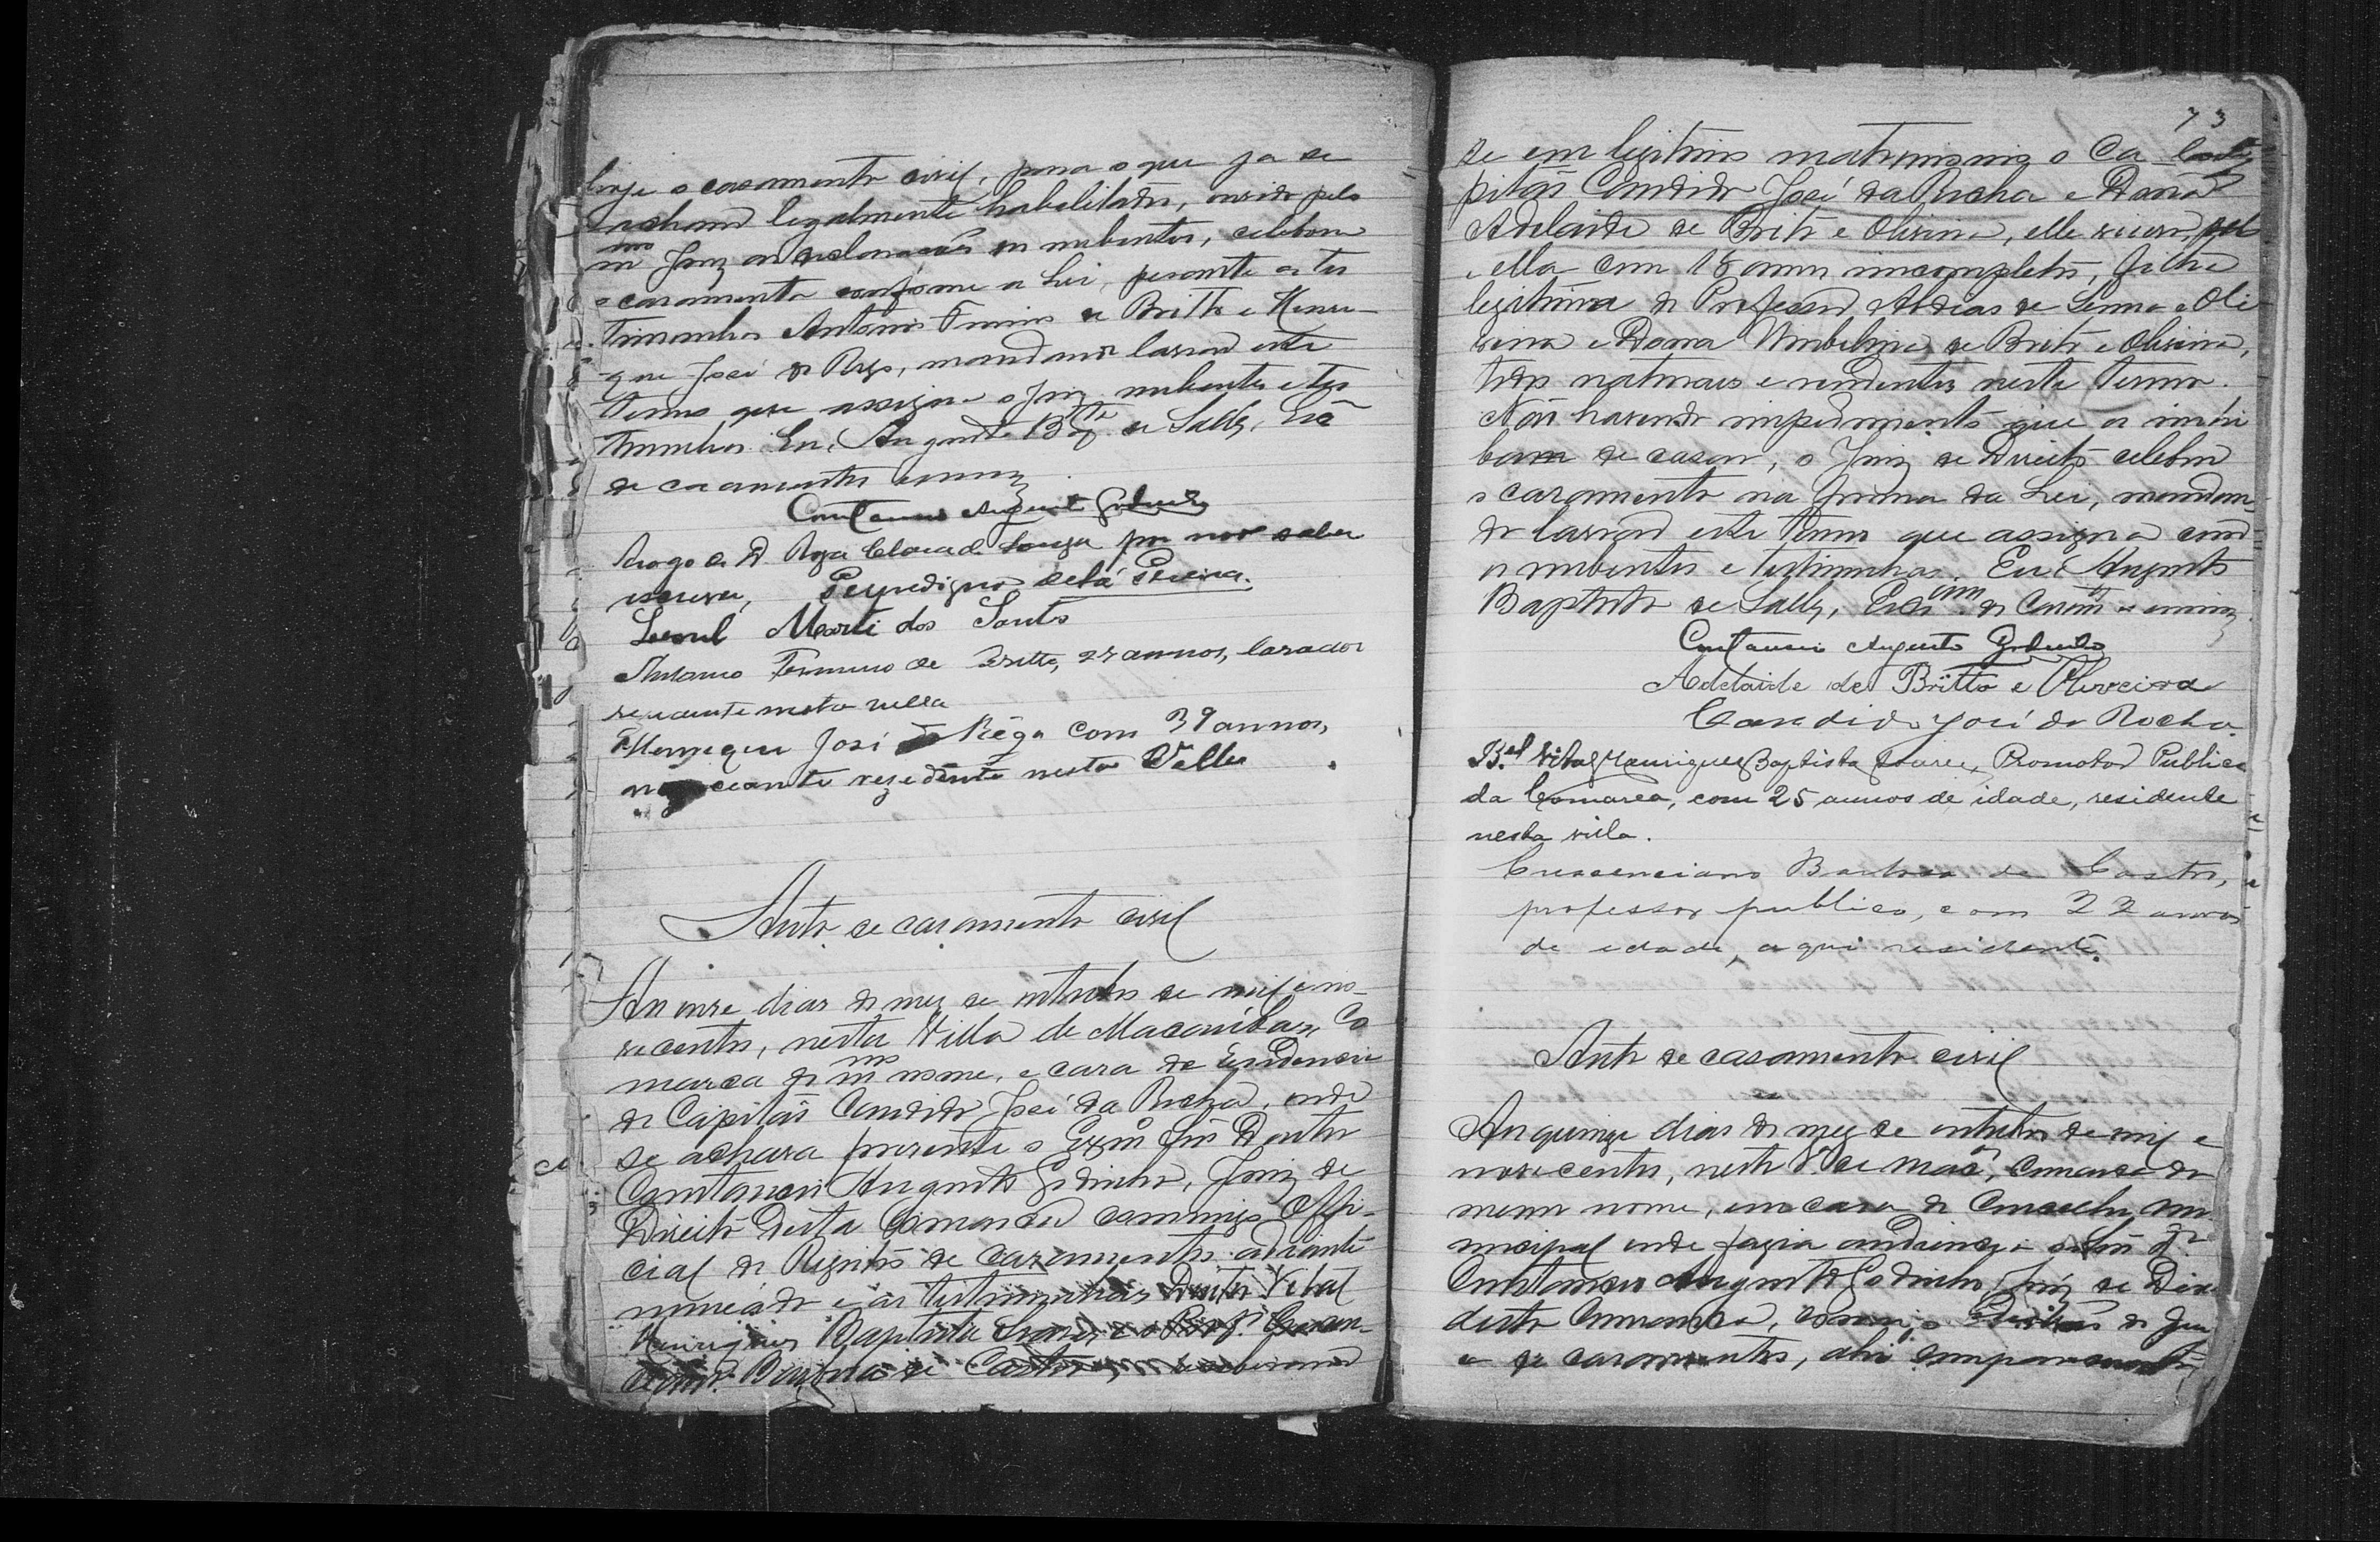 hoje o casamento civil, para o que ja se
acham legalmente habilitados, ouvido pelo
mmo Juiz as declarações dos nubentes, celebrou
o casamento conforme a Lei, perante as tes
timunhas Antonio Firmino de Britto e Henri-
que José do Rego, mandando lavrar este
termo que assigna o Juiz, nubentes e tes
timunhas. Eu, Augusto Bapta de Salles,
de casamentos escrevi
Constancio Augusto Godinho
Arogo de D. Roza Clara de Souza por não saber
escrever, Perpedigno de Sá Pereira.
Leonel Marti dos Santos
Antonio Firmino de Britto, annos, lavrador
residente nesta villa
Henrique José do Rêgo com 39 annos,
negociante rezidente nesta Villa
Auto de casamento civil
Aos onze dias do mez de outubro de mil e no-
vecentos, nesta Villa de Macaúbas, Co
marca do mmo nome, e casa de residencia
do Capitão Candido José da Rocha, onde
se achava presente o Exmo Snr Doutor
Constancio Augusto Godinho, Juiz de
Direito desta Comarca commigo Offi-
cial do Registro de casamentos adiante
nomeado e as testimunhas Doutor Vital
Henriques Baptista Soares e o Profor Crescen-
ciano Barbosa de Castro, receberam
73
se em legitimo matrimonio o Ca
pitão Candido José da Rocha e Dona
Adelaide de Brito e Oliveira, elle viuvo
e ella com 18 annos incompletos, filha
legitima do Professor Abdias de Senna e Oli
veira e Dona Umbelina de Brito e Oliveira,
todos naturaes e residentes neste termo.
Não havendo impedimento que os inhi
bam de casar, o Juiz de Direito celebrou
o casamento na forma da Lei, mandan-
do lavrar este termo que assigna com
os nubentes e testimunhas. Eu, Augusto
Baptista de Salles, Escrivam de Casamtos o escrevi
Constancio Augusto Godinho
Adelaide de Britto e Oliveira
Candido José da Rocha.
B.el Vital Henriques Baptista Soares, Promotor Publico
da Comarca, com 25 annos de idade, residente
nesta villa.
Crescenciano Barbosa de Castro,
professor publico, com 22 annos
de edade, aqui residente.
Auto de casamento civil
Aos quinze dias do mez de outubro de mil e
novecentos, nesta Va de Macas, Comarca do
mesmo nome, em casa do Conselho Mu
nicipal onde fazia audiencia o Snr Dr
Constancio Augusto Godinho, Juiz de Direito
desta Comarca, commigo Escrivão do Jury
e de casamentos, ahi compareceram